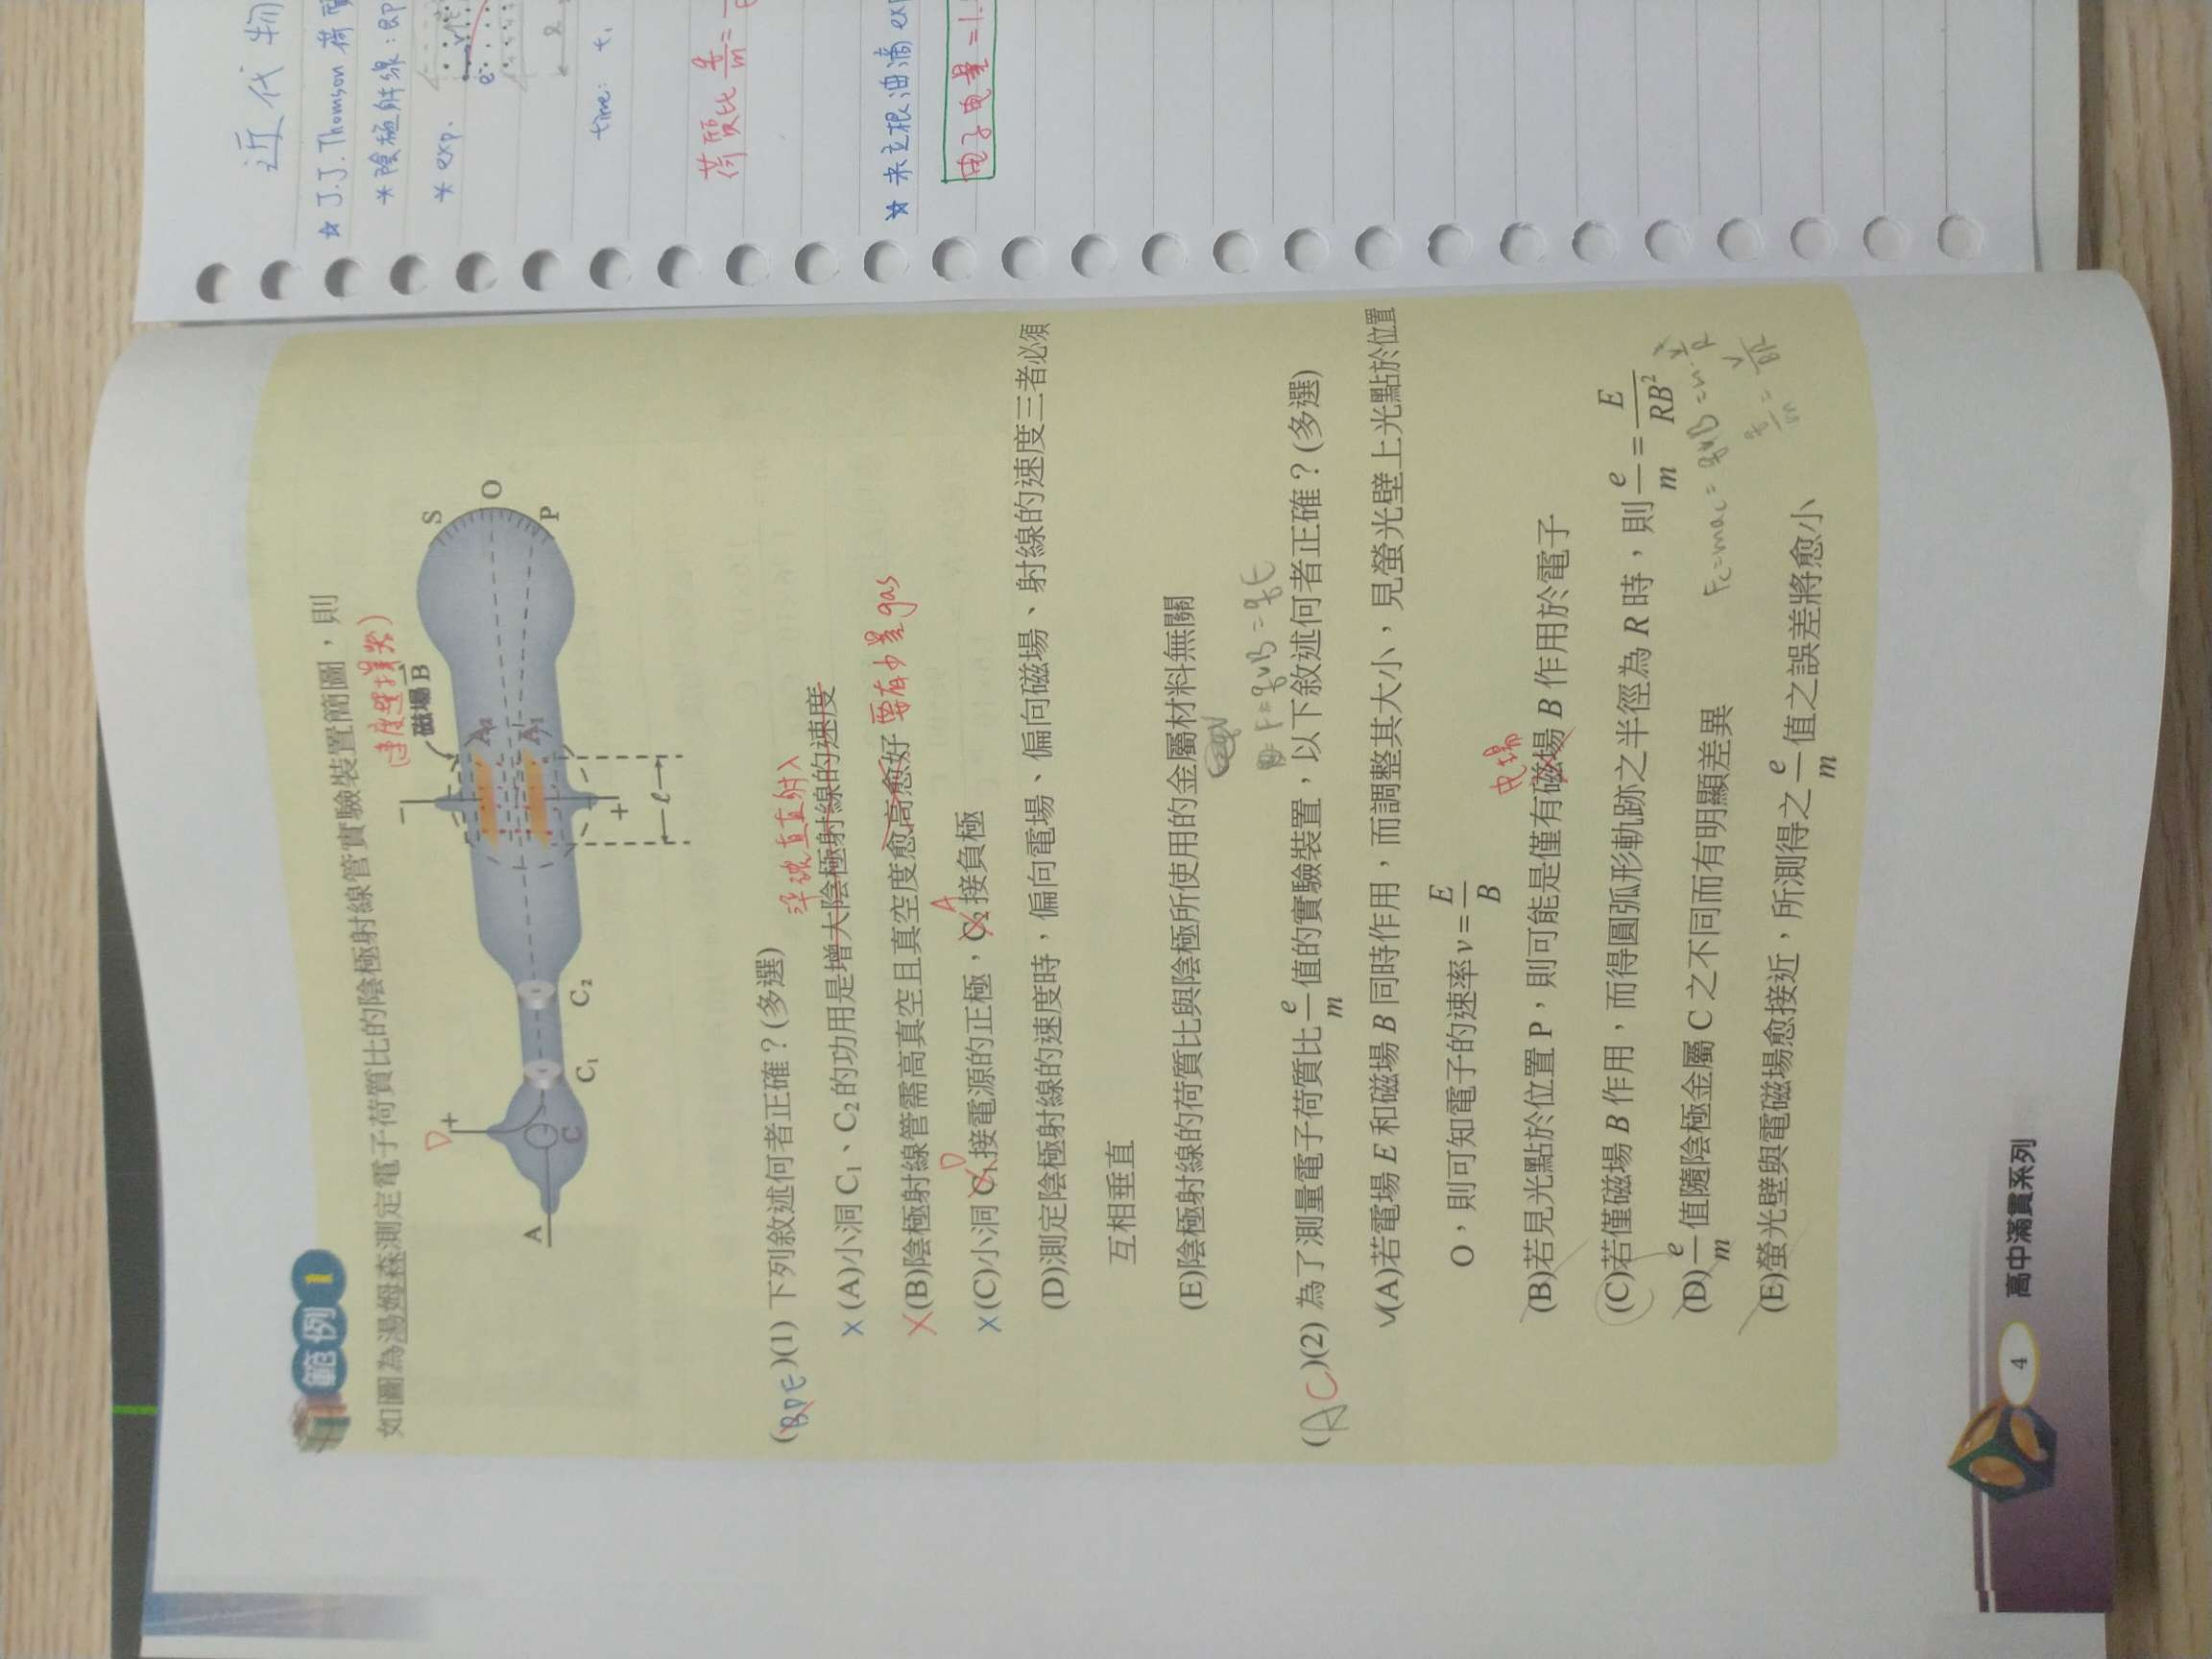 範例 1
如圖為湯姆森測定電子荷質比的陰極射線管實驗裝置簡圖，則
(速度選擇器)
磁場 B
D
+
−
S
O
P
A
C
C₁
C₂
A₂
A₁
+
ℓ
(BDE)(1) 下列敘述何者正確？(多選)
準確直直射入
X (A)小洞 C₁、C₂ 的功用是增大陰極射線的速度
X (B)陰極射線管需高真空且真空度愈高愈好 要有少量gas
X (C)小洞 C₁ 接電源的正極，C₂ 接負極
D
A
(D)測定陰極射線的速度時，偏向電場、偏向磁場、射線的速度三者必須
互相垂直
(E)陰極射線的荷質比與陰極所使用的金屬材料無關
F=qvB=qE
(AC)(2) 為了測量電子荷質比 e/m 值的實驗裝置，以下敘述何者正確？(多選)
✓(A)若電場 E 和磁場 B 同時作用，而調整其大小，見螢光壁上光點於位置
O，則可知電子的速率 v = E/B
電場
(B)若見光點於位置 P，則可能是僅有磁場 B 作用於電子
(C)若僅磁場 B 作用，而得圓弧形軌跡之半徑為 R 時，則 e/m = E/RB²
Fc=mac=qvB=
(D) e/m 值隨陰極金屬 C 之不同而有明顯差異
(E)螢光壁與電磁場愈接近，所測得之 e/m 值之誤差將愈小
4 高中滿貫系列
近代物
☆ J.J. Thomson 荷質
*陰極射線：即
* exp.
e
v
l
time: t₁
荷質比 q/m =
☆ 米立根油滴 exp
电子电量 = 1.